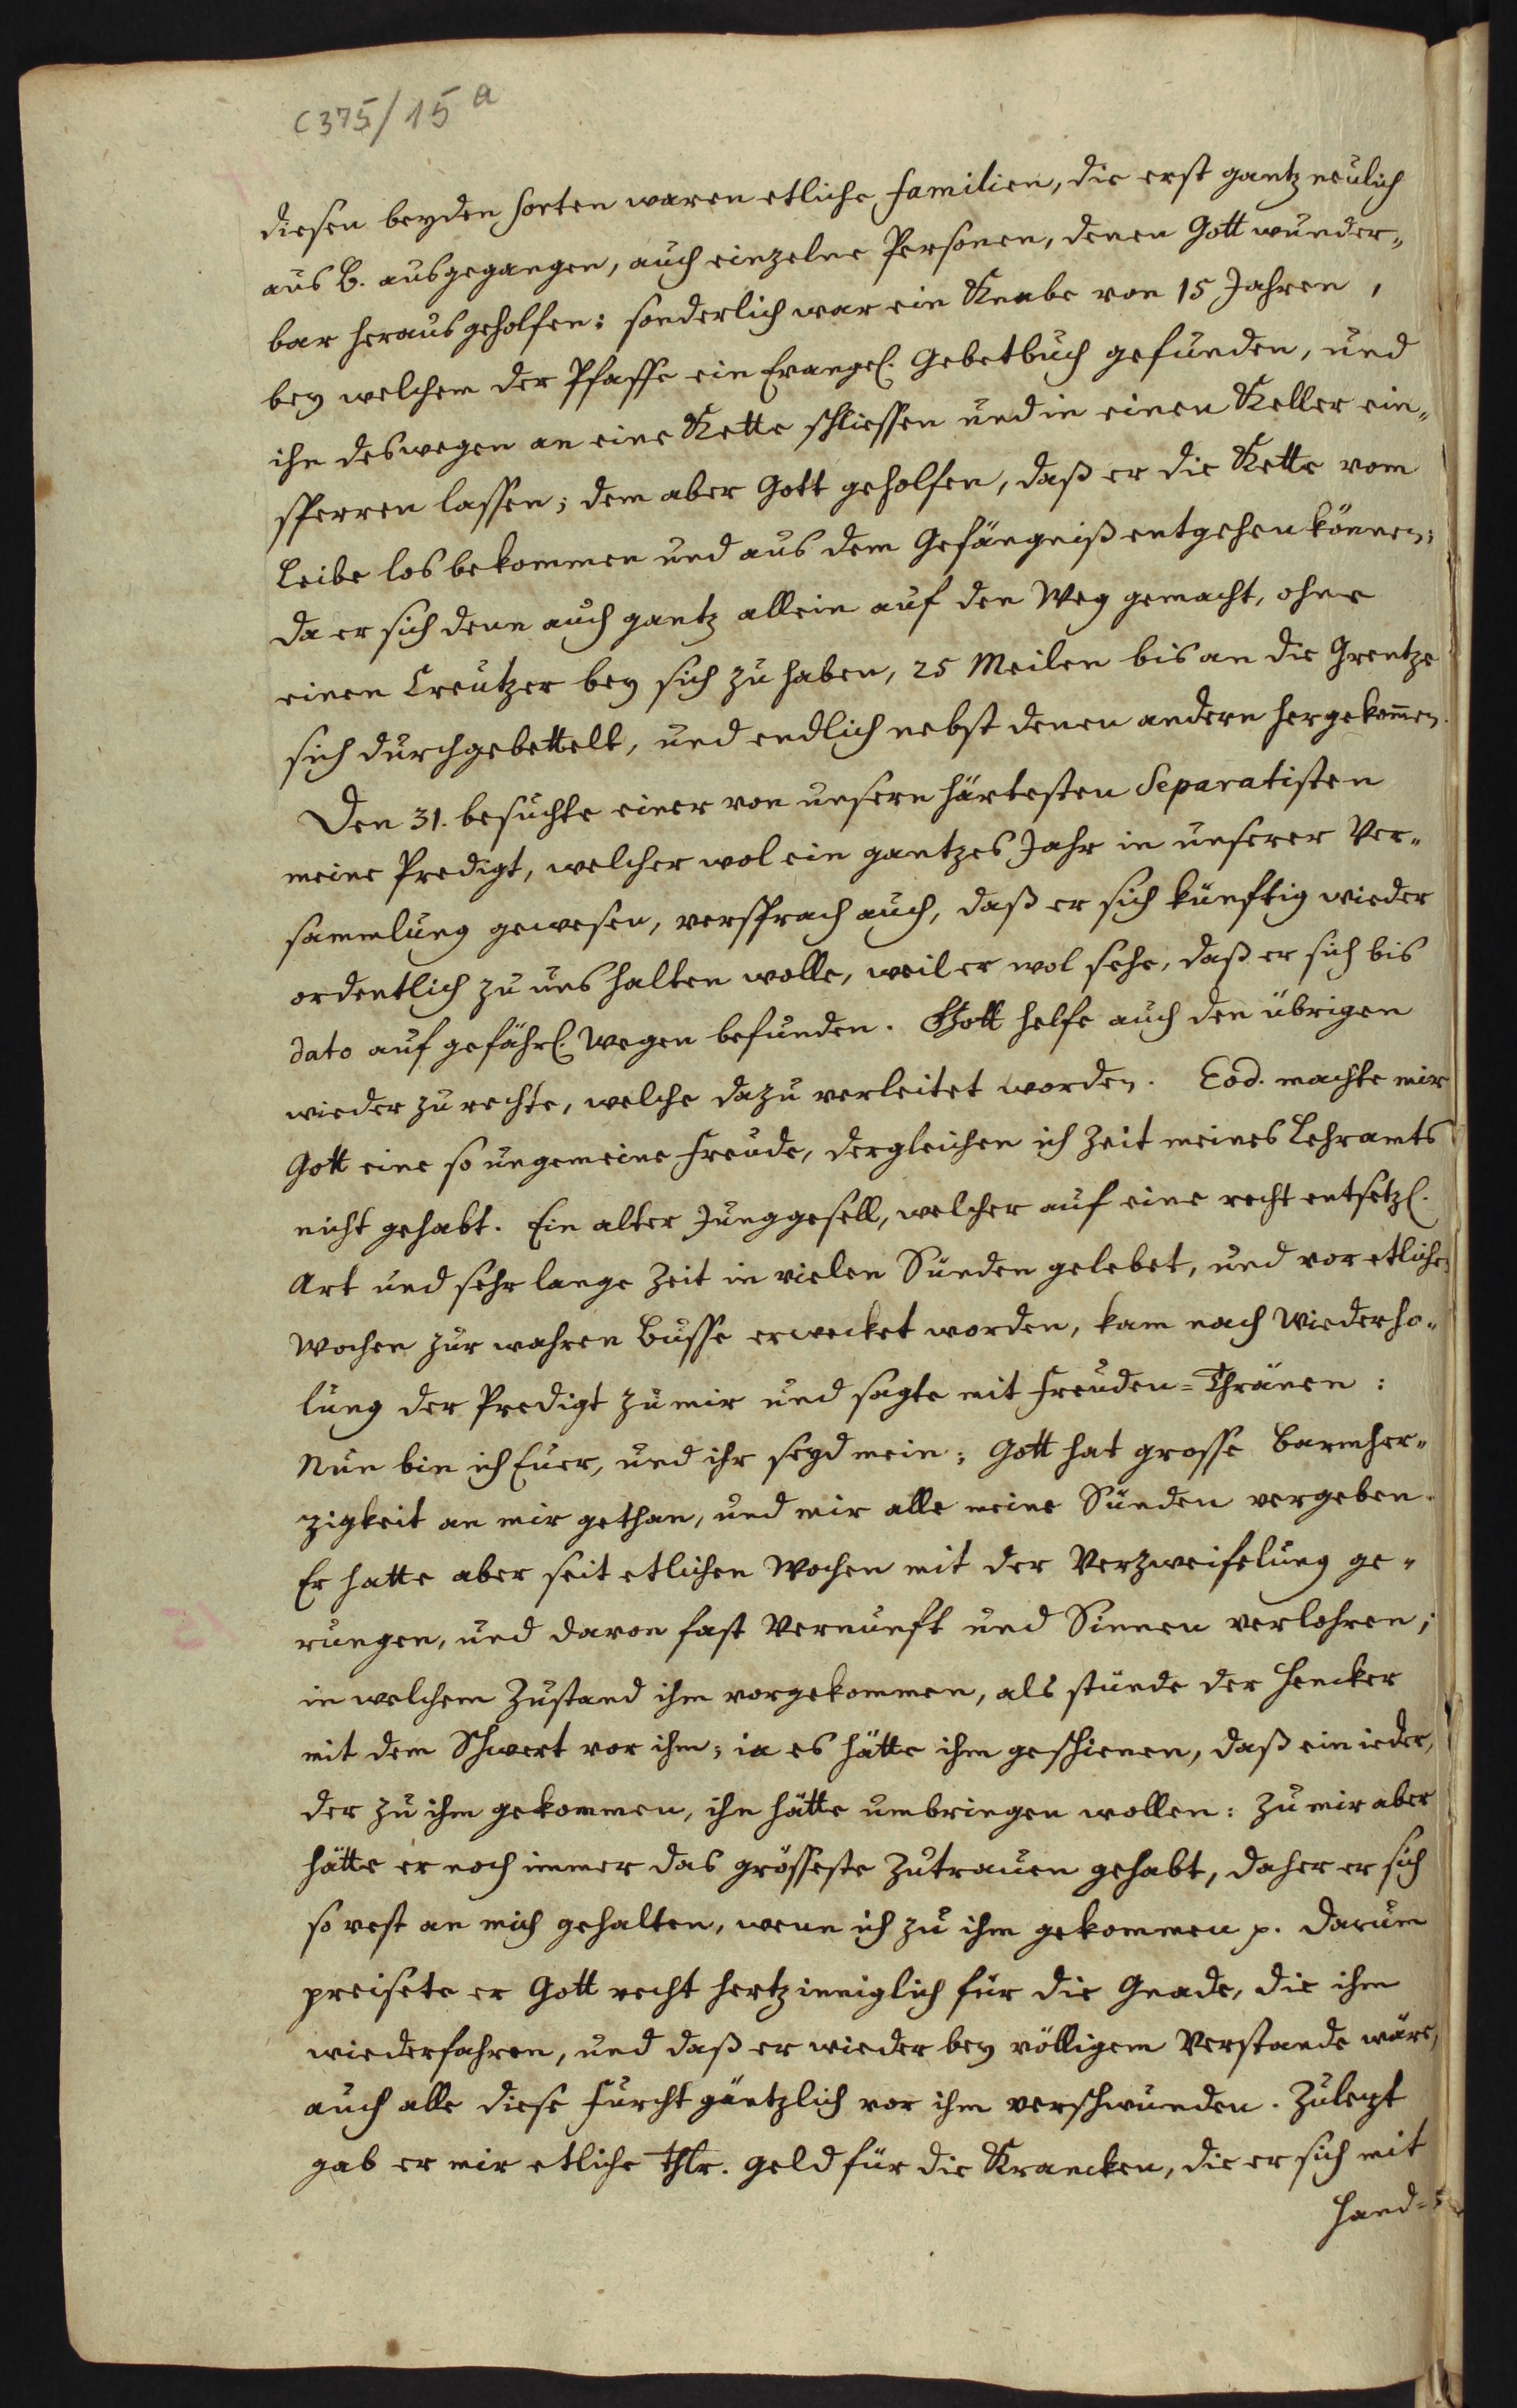 C375/15 a
diesen beyden Sorten waren etliche Familien, die erst gantz neulich
aus B. ausgegangen, auch einzelne Personen, denen Gott wunder„
bar herausgeholfen: sonderlich war ein Knabe von 15 Jahren,
bey welchem der Pfaffe ein Evangel. Gebetbuch gefunden, und
ihn deswegen an eine Kette schliessen und in einen Keller ein„
sperren lassen; dem aber Gott geholfen, daß er die Kette vom
Leibe los bekommen und aus dem Gefängniß entgehen können;
da er sich denn auch gantz allein auf den Weg gemacht, ohne
einen Creutzer bey sich zu haben, 25 Meilen bis an die Grentze
sich durchgebettelt, und endlich nebst denen andern hergekom̄en.
Den 31. besuchte einer von unsern härtesten Separatisten
meine Predigt, welcher wol ein gantzes Jahr in unserer Ver„
sammlung gewesen, versprach auch, daß er sich künftig wieder
ordentlich zu uns halten wolle, weil er wol sehe, daß er sich bis
dato auf gefährl. Wegen befunden. Gott helfe auch den übrigen
wieder zu rechte, welche dazu verleitet worden. Eod. machte mir
Gott eine so ungemeine Freude, dergleichen ich Zeit meines Lehramts
nicht gehabt. Ein alter Junggesell, welcher auf eine recht entsetzl.
Art und sehr lange Zeit in vielen Sünden gelebet, und vor etlichen
Wochen zur wahren Busse erwecket worden, kam nach Wiederho„
lung der Predigt zu mir und sagte mit Freuden=Thränen:
Nun bin ich Euer, und ihr seyd mein; Gott hat grosse Barmher„
zigkeit an mir gethan, und mir alle meine Sünden vergeben.
Er hatte aber seit etlichen Wochen mit der Verzweifelung ge„
rungen, und davon fast Vernunft und Sinnen verlohren;
in welchem Zustand ihm vorgekommen, als stünde der Hencker
mit dem Schwert vor ihm; ia es hätte ihm geschienen, daß ein ieder,
der zu ihm gekommen, ihn hätte umbringen wollen: zu mir aber
hätte er noch immer das grösseste Zutrauen gehabt, daher er sich
so vest an mich gehalten, wenn ich zu ihm gekommen p. Darum
preisete er Gott recht hertzinniglich für die Gnade, die ihm
wiederfahren, und daß er wieder bey völligem Verstande wäre,
auch alle diese Furcht gäntzlich vor ihm verschwunden. Zulezt
gab er mir etliche Thlr. Geld für die Krancken, die er sich mit
Hand=